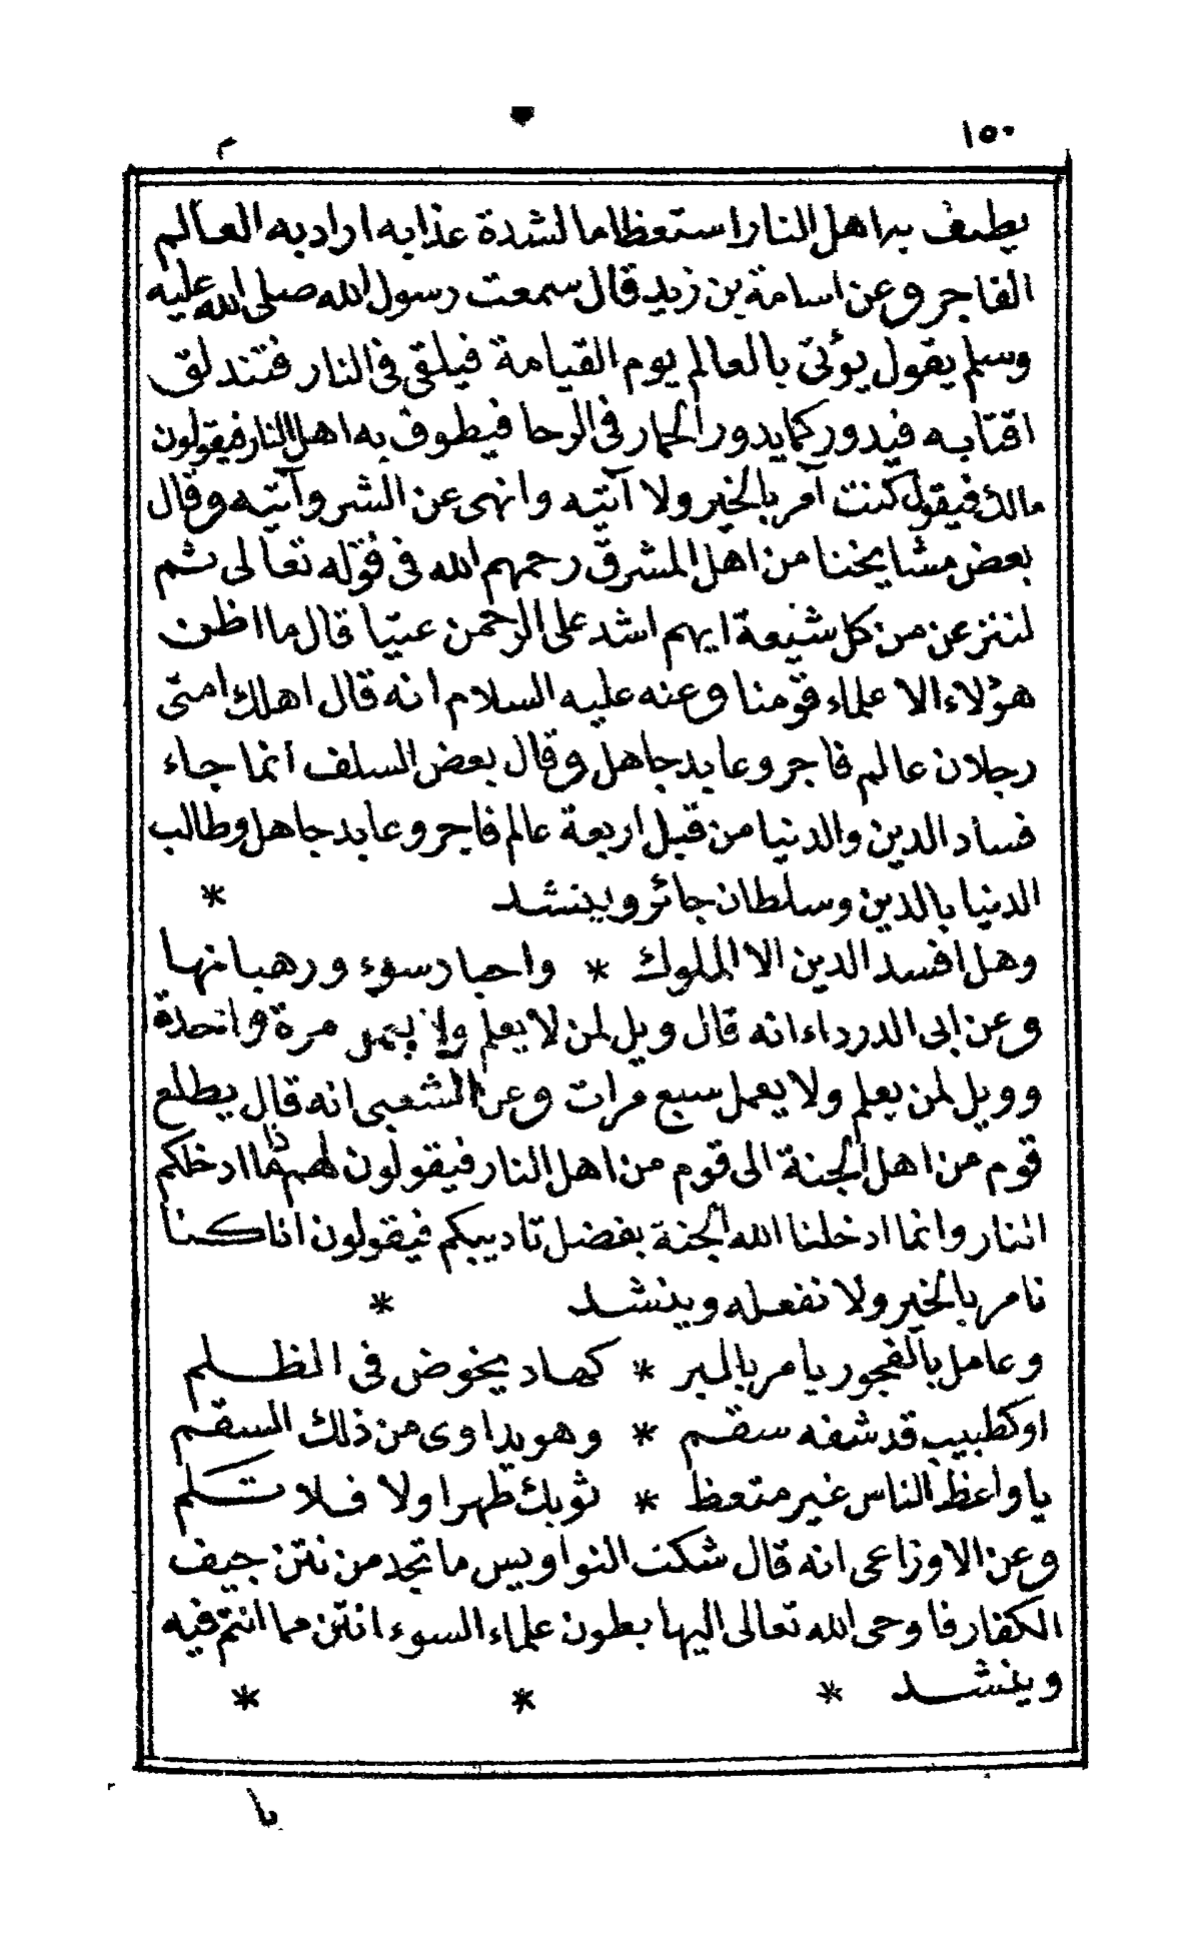 ١٥٠
يطيف به اهل النار استعظاما لشدة عذابه اراد به العالم
الفاجر وعن اسامة بن زيد قال سمعت رسول الله صلى الله عليه
وسلم يقول يؤتى بالعالم يوم القيامة فيلقى فى النار فتندلق
اقتابه فيدور كما يدور الحمار فى الرحا فيطوف به اهل النار فيقولون
مالك فيقول كنت آمر بالخير ولا آتيه وانهى عن الشر وآتيه وقال
بعض مشايخنا من اهل المشرق رحمهم الله فى قوله تعالى ثم
لننزعن من كل شيعة ايهم اشد على الرحمن عتيا قال ما اظن
هؤلاء الا علماء قومنا وعنه عليه السلام انه قال اهلك امتى
رجلان عالم فاجر وعابد جاهل وقال بعض السلف انما جاء
فساد الدين والدنيا من قبل اربعة عالم فاجر وعابد جاهل وطالب
الدنيا بالدين وسلطان جائر وينشد *
وهل افسد الدين الا الملوك * واحبار سوء ورهبانها
وعن ابى الدرداء انه قال ويل لمن لا يعلم ولا يعمل مرة واحدة
وويل لمن يعلم ولا يعمل سبع مرات وعن الشعبى انه قال يطلع
قوم من اهل الجنة الى قوم من اهل النار فيقولون لهم ماذا ادخلكم
النار وانما ادخلنا الله الجنة بفضل تاديبكم فيقولون اناكنا
نامر بالخير ولا نفعله وينشد *
وعامل بالفجور يامر بالبر * كهاد يخوض فى الظلم
اوكطبيب قد شفه سقم * وهو يداوى من ذلك السقم
يا واعظ الناس غير متعظ * ثوبك طهرا ولا فلا تلم
وعن الاوزاعى انه قال شكت النواويس ما تجد من نتن جيف
الكفار فاوحى الله تعالى اليها بطون علماء السوء انتن مما انتم فيه
وينشد * * *
يا